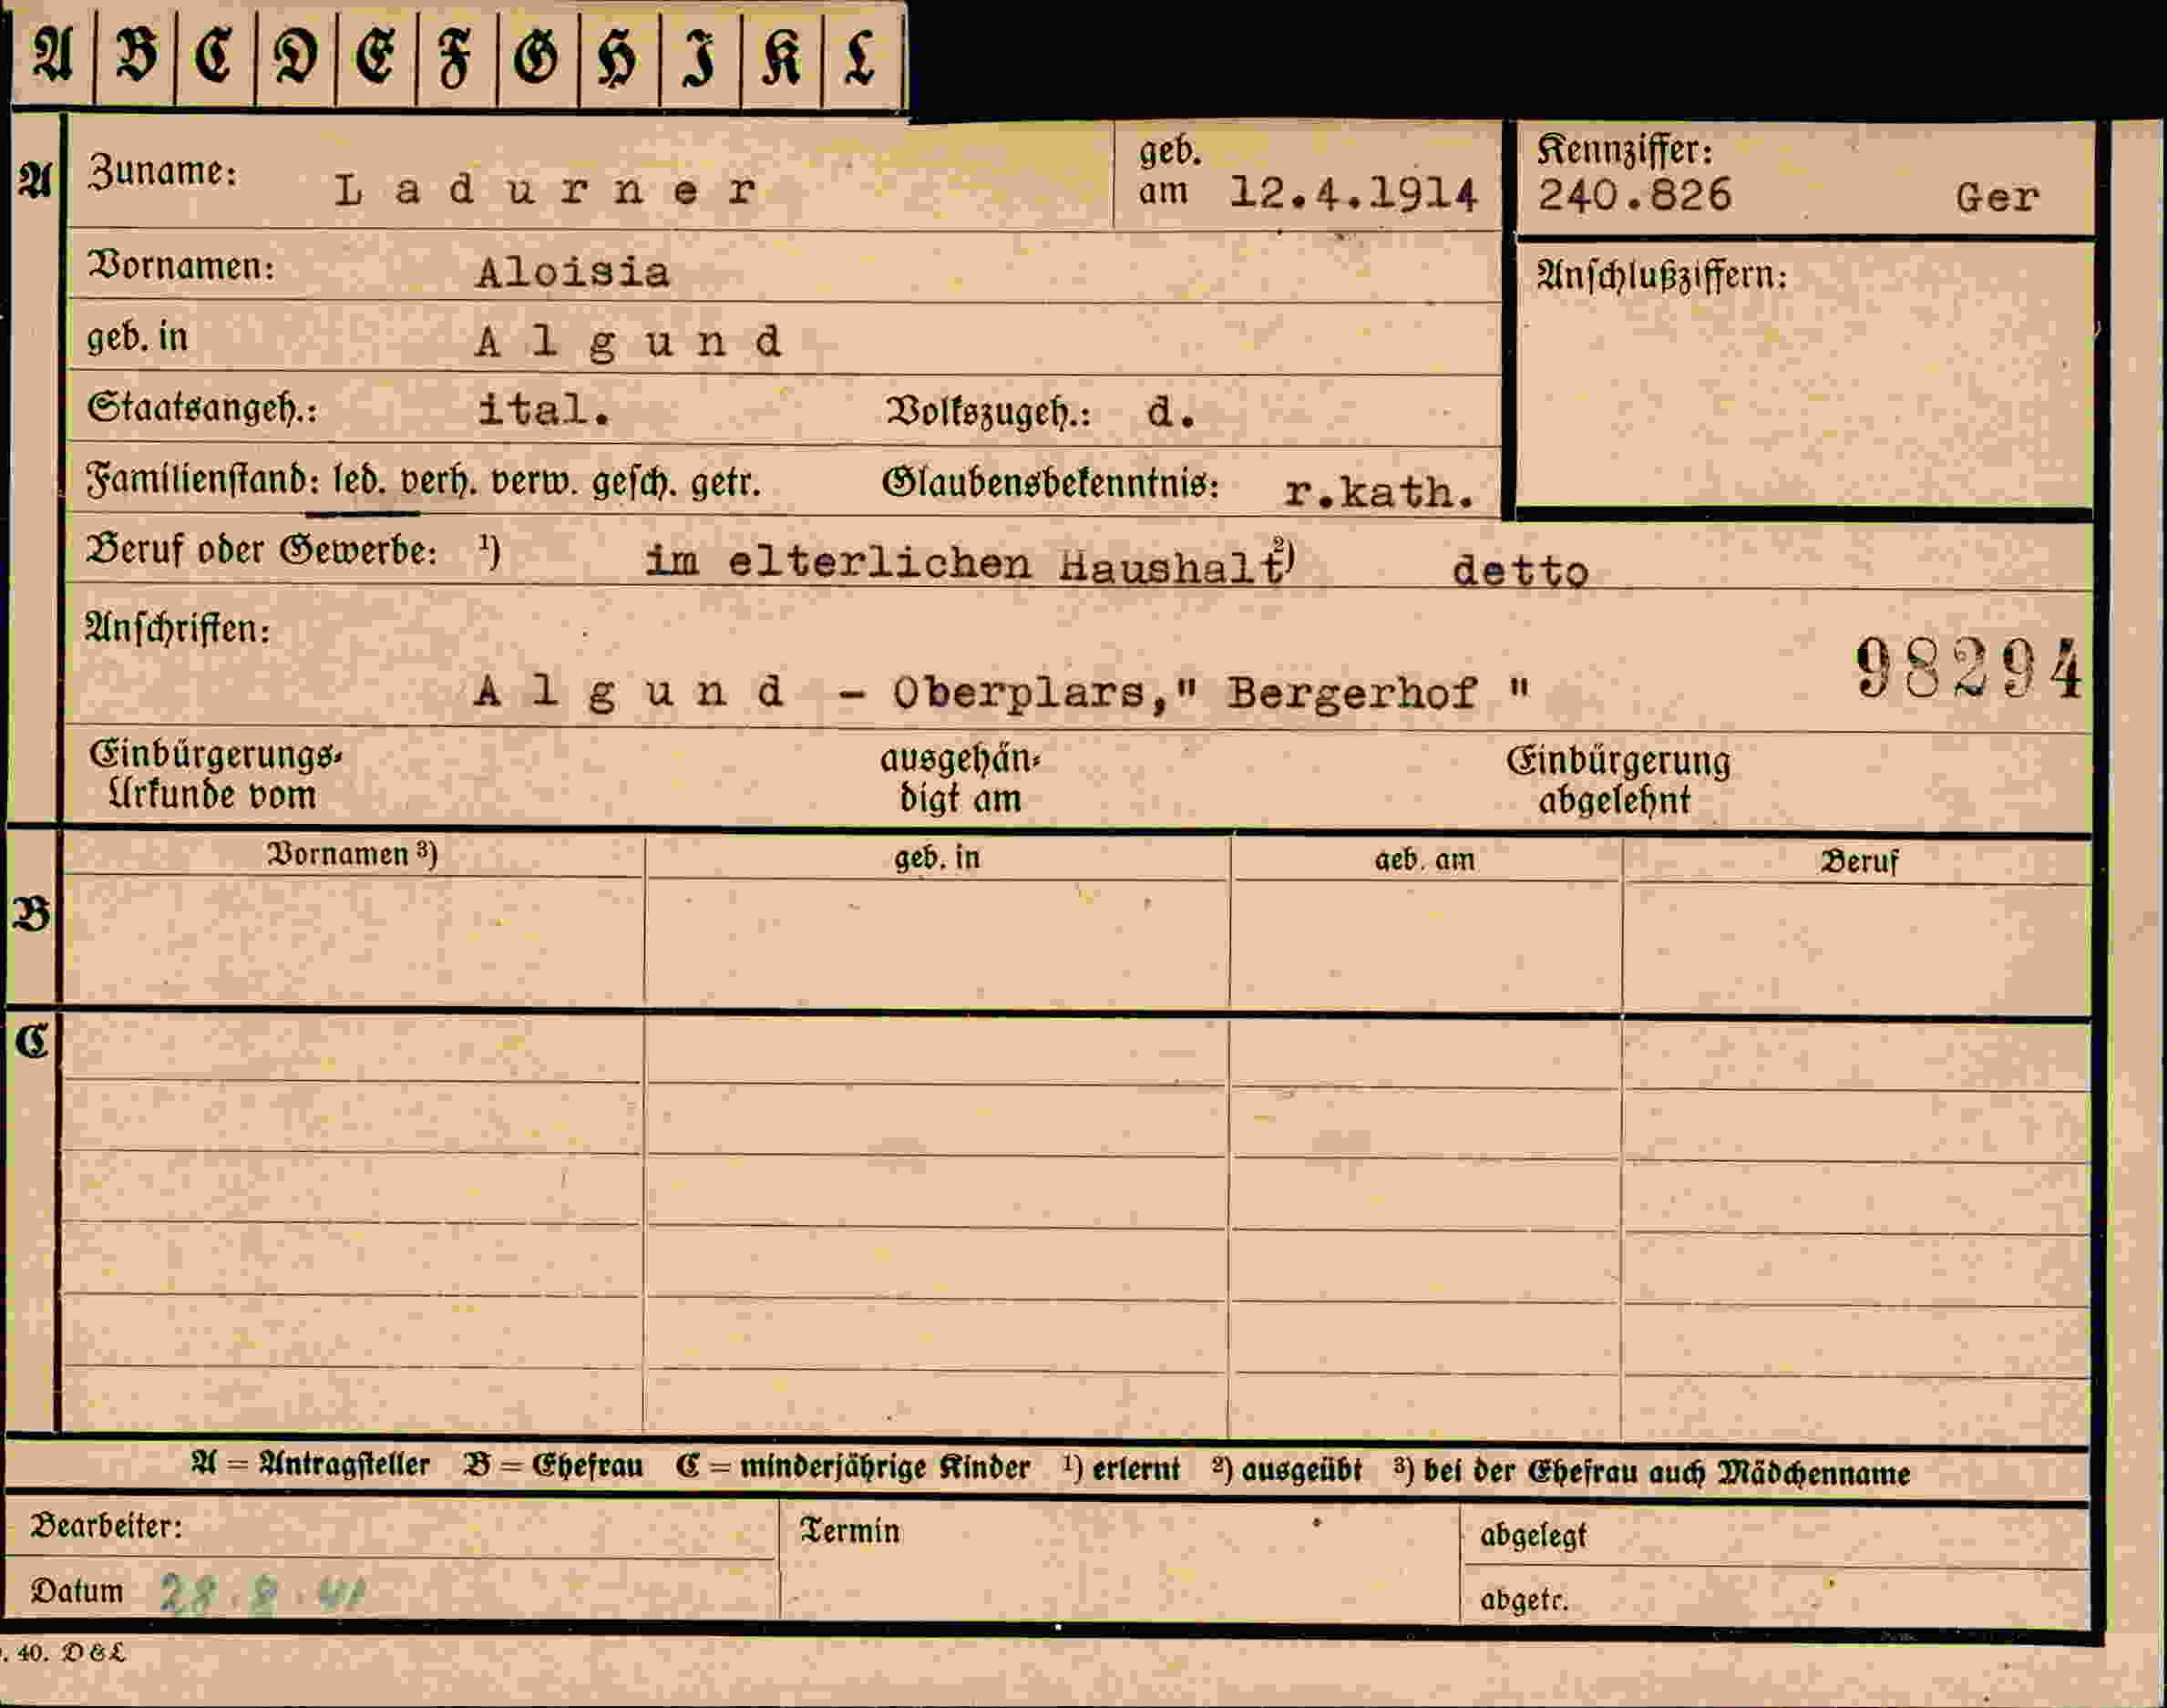 A B C D E F G H I K L
A Zuname: Ladurner geb. am 12.4.1914 Kennziffer: 240.826 Ger
Vornamen: Aloisia Anschlußziffern:
geb. in Algund
Staatsangeh.: ital. Volkszugeh.: d.
Familienstand: led. verh. verw. gesch. getr. Glaubensbekenntnis: r.kath.
Beruf oder Gewerbe: ¹) im elterlichen Haushalt ²) detto
Anschriften:
98294
Algund - Oberplars," Bergerhof "
Einbürgerungs- ausgehän- Einbürgerung
Urkunde vom digt am abgelehnt
Vornamen ³) geb. in geb. am Beruf
B
C
A = Antragsteller B = Ehefrau C = minderjährige Kinder ¹) erlernt ²) ausgeübt ³) bei der Ehefrau auch Mädchenname
Bearbeiter: Termin abgelegt
Datum 28.8.41 abgetr.
. 40. D&L